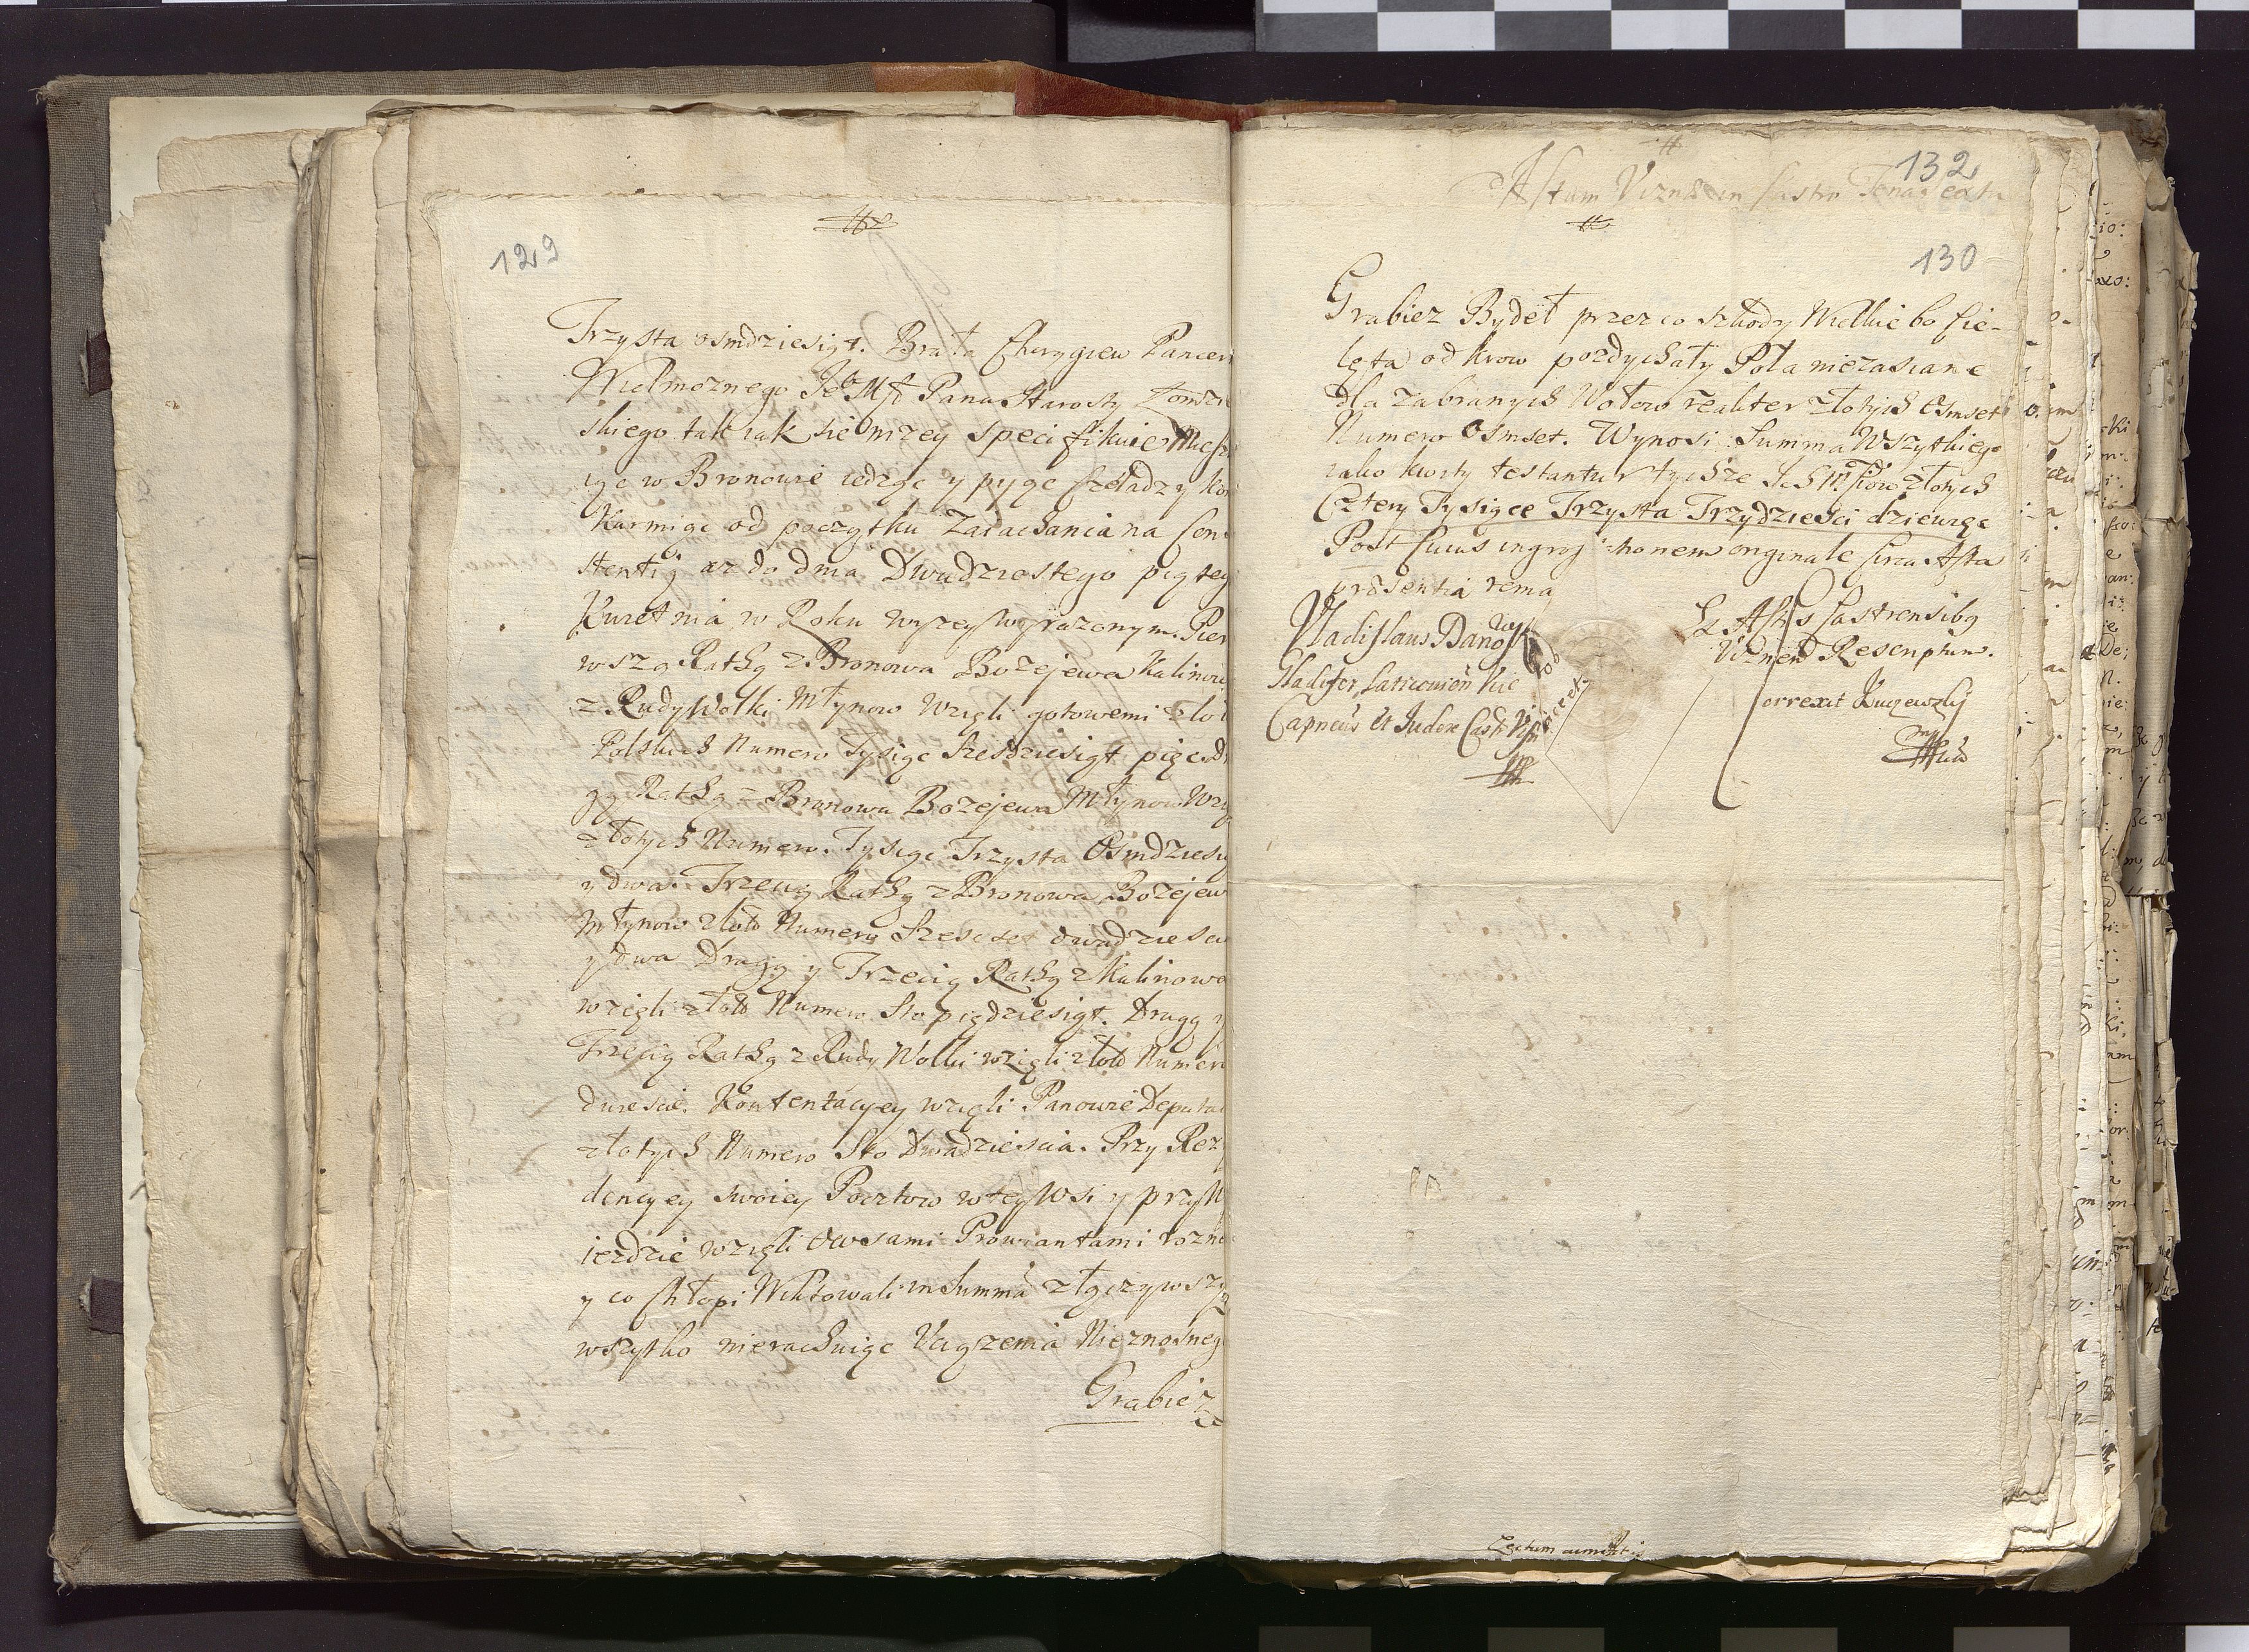 129
Trzysta osmdziesiąt. Brała Chorągiew Pancer
Wielmoznego Je Mści Pana Starosty Łomżi
skiego tak iak sie nizey specifikuie Miesz
ıąc w Bronowie iedząc y pyąc Czeladz y kon
Karmiąc od początku Zaiachania na Con
stentią az do dnia Dwudziestego piąteg
Kwietnia w Roku wyzey wyrazonym. Pier
wszą Rathą z Bronowa Bozejewa Kalinow
z Rudy Wolki Młynow wzięli gotowemi zło
Polskich Numero Tysiąc Szesdziesiąt pięc. D
gą Rathą z Bronowa Bozejewa Młynow Wzię
złotych Numero. Tysiąc Trzysta Osmdziesią
y dwa. Trzecią Rathą z Bronowa Bozejew
Młynow złoto Numero Szescset dwadziescia
y dwa Drugą y Trzecią Rathą z Kalinowa
wzięli złoto Numero Sto pięcdziesiąt. Drugą y
Trzecią Rathą z Rudy Wolki wzięli złoto Numero
dwiescie. Kontentacyey wzięli Panowie Deputa
złotych Numero Sto Dwadziescia. Przy Rezy
dencyey swoiey Pocztow w tey Wsi y przy W
iezdzie wzięli Owsami Prowiantami rozne
y co Chłopi Wiktowali in Summa złączywszy
wszytko nierachuiąc Uciązenia Nieznosneg
Grabiez
132
Actum Viznae in Castro
130
Grabiez Bydeł przez co szkody Wielkie bo Cie-
lęta od krow pozdychały Pola niezasiane
dla zabranych Wołow realiter złotych Osmset
Numero Osmset. Wynosi Summa Wszytkiego
iako kwity testantur tychze Ich Mściow złotych
Cztery Tysiące Trzysta Trzydziesci dziewięc
Post cuius ingrossationem originale circa Acta
præsentia rema
Vladislaus
Gladifer
Capneus et Iudex Castr
Ex Actis Castrensibg
Viznen Rescriptum.
Correxit
Lectum